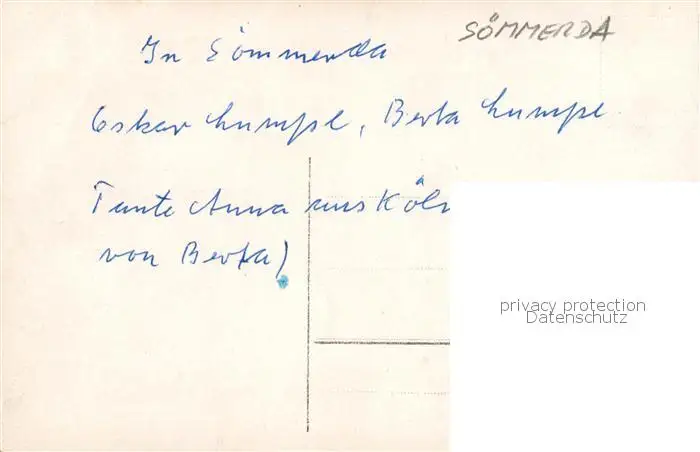 SÖMMERDA
In Sömmerda
Oskar Lumpe, Berta Lumpe
Tante Anna aus Köln
von Berta)
privacy protection
Datenschutz